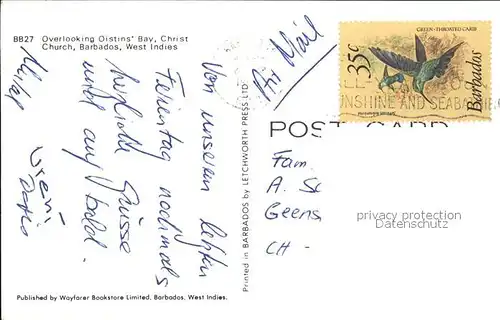 BB27 Overlooking Oistins' Bay, Christ
Church, Barbados, West Indies
Von unseren letzten
Ferientag nochmals
herzliche Grüsse
und auf bald.
Vreni
Published by Wayfarer Bookstore Limited, Barbados, West Indies.
Printed in BARBADOS by LETCHWORTH PRESS LTD
Air Mail
GREEN-THROATED CARIB
35c
Barbados
UNSHINE AND SEABA
POST CARD
Fam.
A. Sc
Geens
CH -
privacy protection
Datenschutz